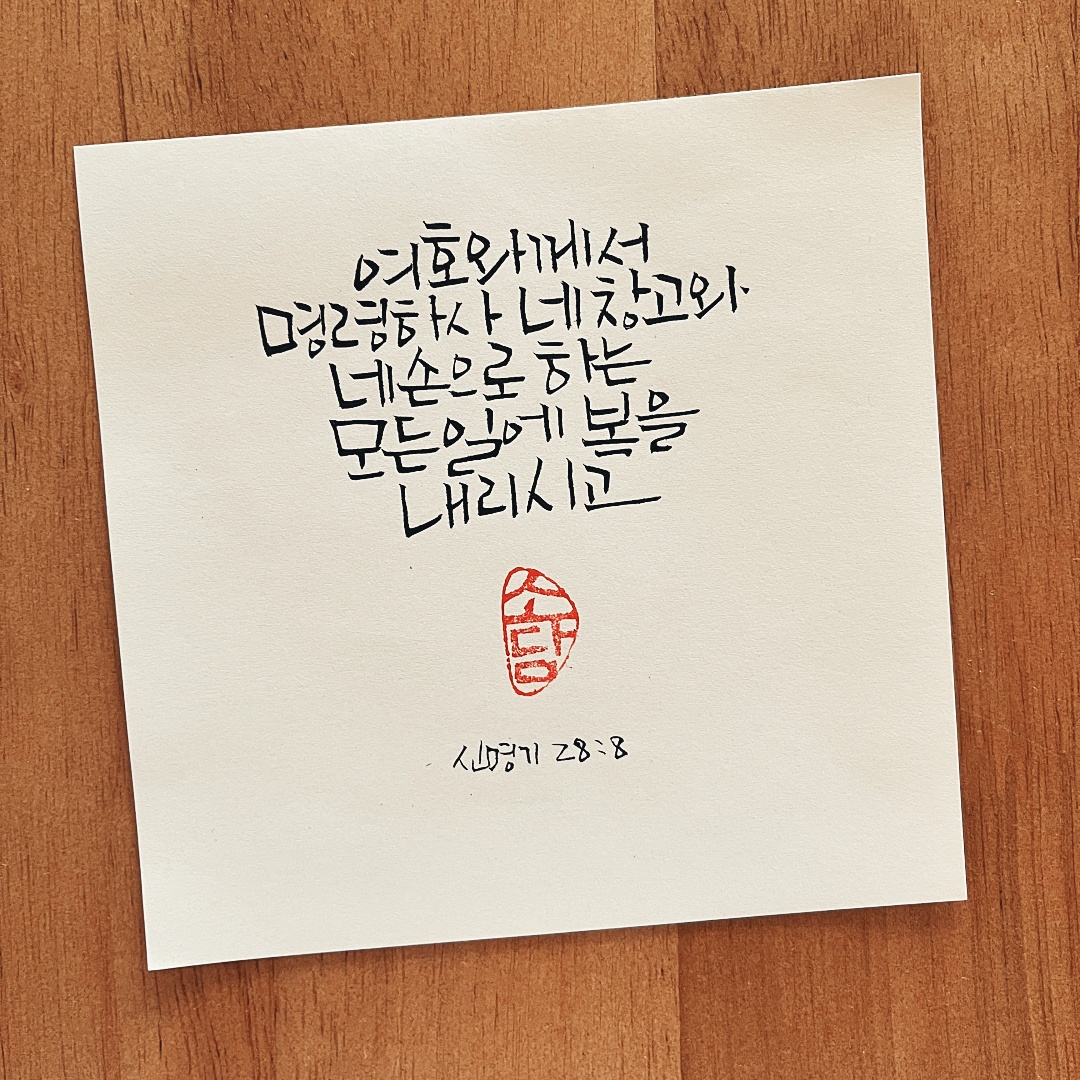 여호와께서
명령하사 네 창고와
네 손으로 하는
모든 일에 복을
내리시고
소담
신명기 28:8